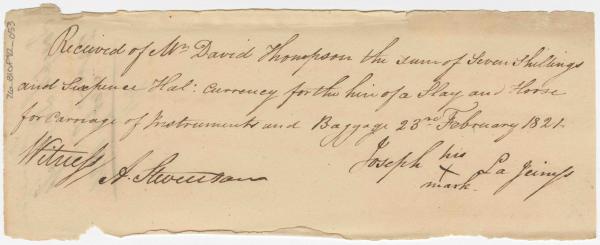 Received of Mr David Thompson the sum of Seven Shillings
and Sixpence Hal: Currency for the hire of a Slay and Horse
for Carriage of Instruments and Baggage 23rd February 1821
Witness
A. Stevenson
Joseph his X mark La